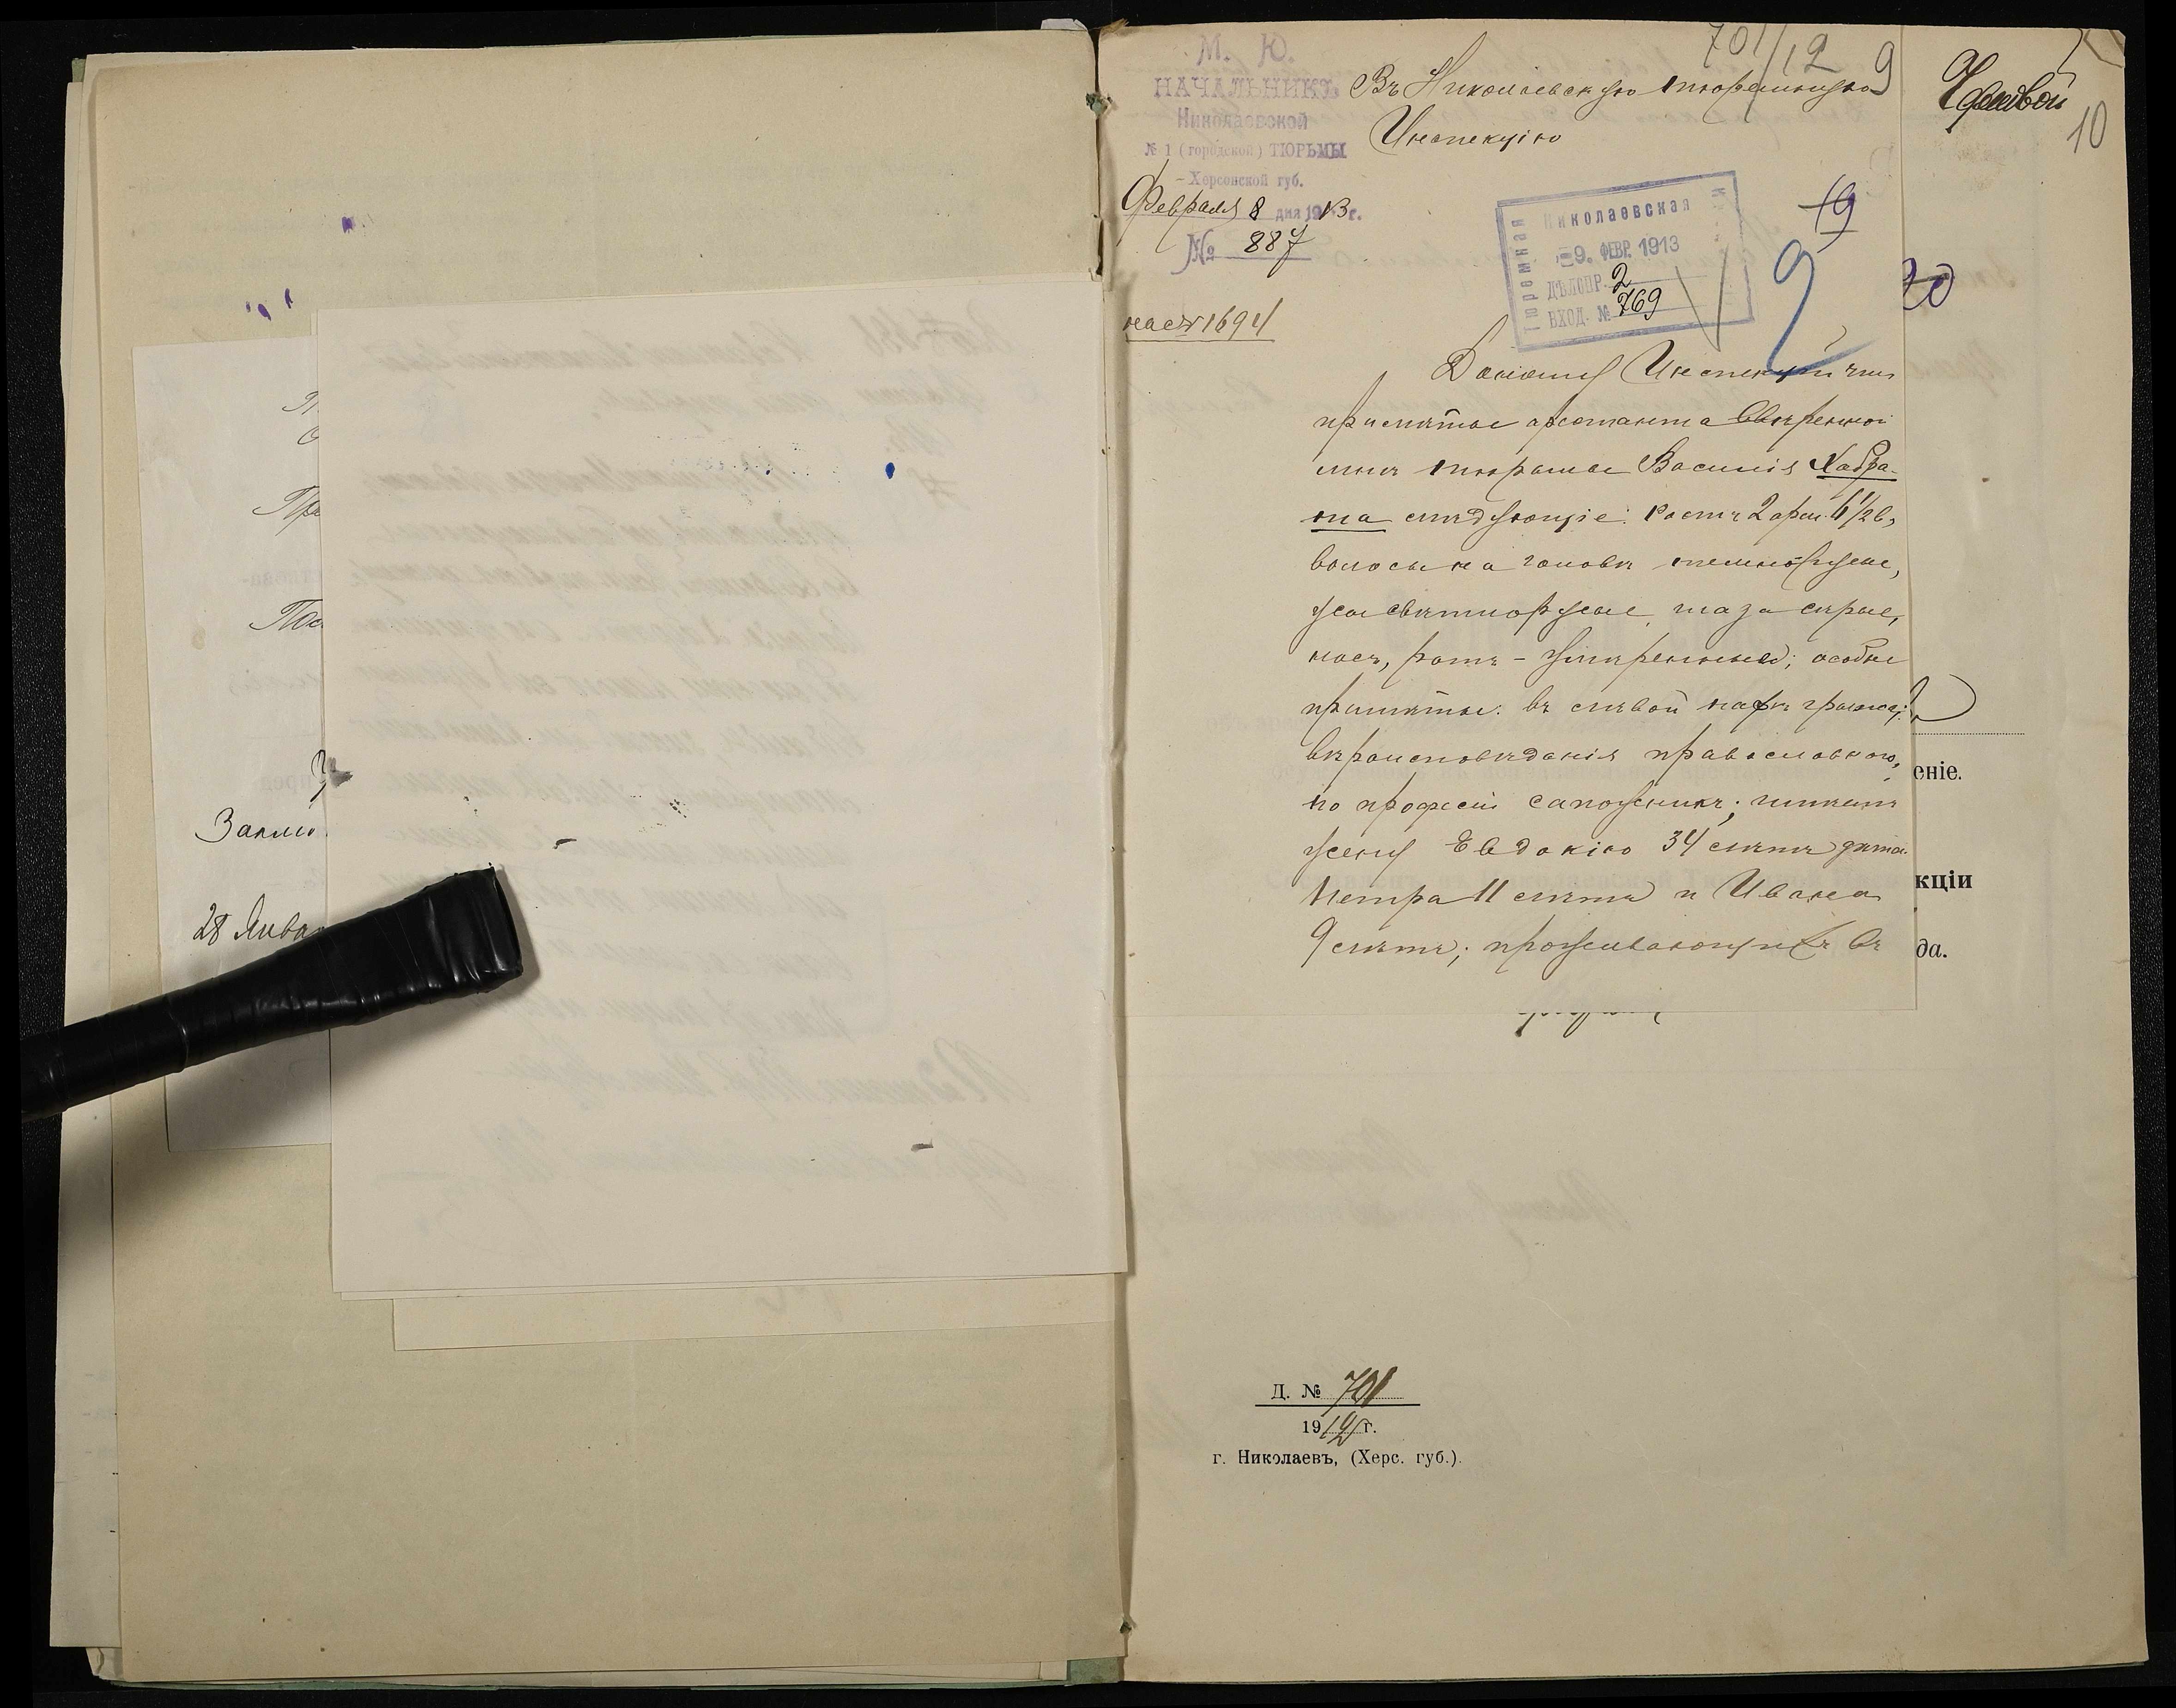 Запис
28 Янва
701/12
9
М. Ю.
НАЧАЛЬНИКЪ
Николаевской
№ 1 (городской) ТЮРЬМЫ
Херсонской губ.
Февраля 8 дня 1913 г.
№ 887
на № 1694
Въ Николаевскую тюремную
Инспекцію
Тюремная
Николаевская
9. ФЕВР. 1913
ДѢЛОПР. 2
ВХОД. № 769
19
10
20
Доношу Инспекціи что
примѣты арестанта ввѣренной
мнѣ тюрьмы Василія Хабра-
на слѣдующіе: Ростъ 2 арш. 6 1/2 в,
волосы на головѣ темнорусые,
усы свѣтлорусые, глаза сѣрые,
носъ, ротъ – умѣренные; особые
примѣты: въ лѣвой
вѣроисповѣданія православнаго,
по професіи сапожникъ; имѣетъ
жену Евдокію 34 лѣтъ дѣтей
Петра 11 лѣтъ и Ивана
9 лѣтъ; проживающихъ въ
еніе.
кціи
да.
Д. № 701
1912 г.
г. Николаевъ, (Херс. губ.).